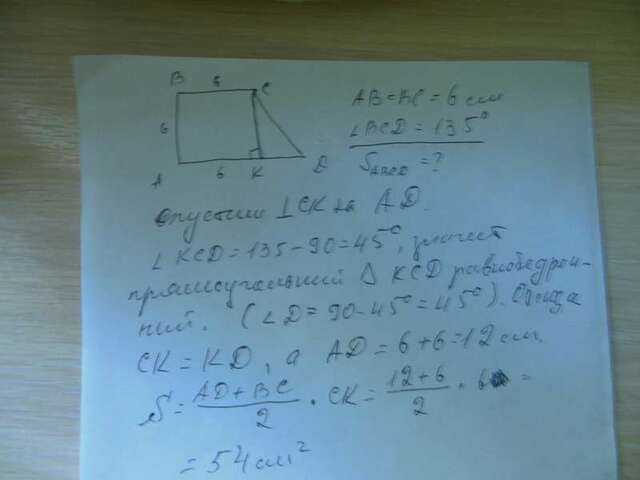 B 6 C
6
A 6 K D
AB=BC=6 см
∠BCD=135°
S_ABCD=?
опустим ⊥CK на AD.
∠KCD=135-90=45°, значит
прямоугольный Δ KCD равнобедрен-
ный. (∠D=90-45°=45°). Отсюда
CK=KD, а AD=6+6=12 см.
S=(AD+BC)/2 · CK=(12+6)/2 · 6 =
=54 см²